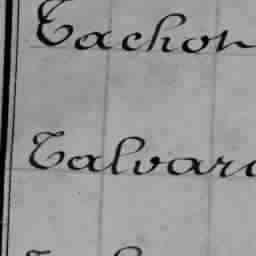 Tachon
Talvard